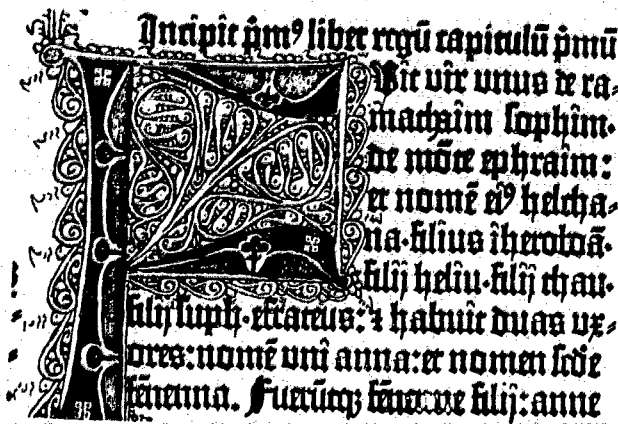 Incipit pmꝰ liber regū capitulū pmū
Fuit vir unus de ra⸗
mathaim sophim·
de mōte ephraim:
et nomē eiꝰ helcha⸗
na·filius iheroboā·
filij heliu·filij thau·
filij suph·effrateus: ⁊ habuit duas ux⸗
ores: nomē uni anna: et nomen scd̄e
fenenna. Fuerūtqꝫ fenenne filij: anne